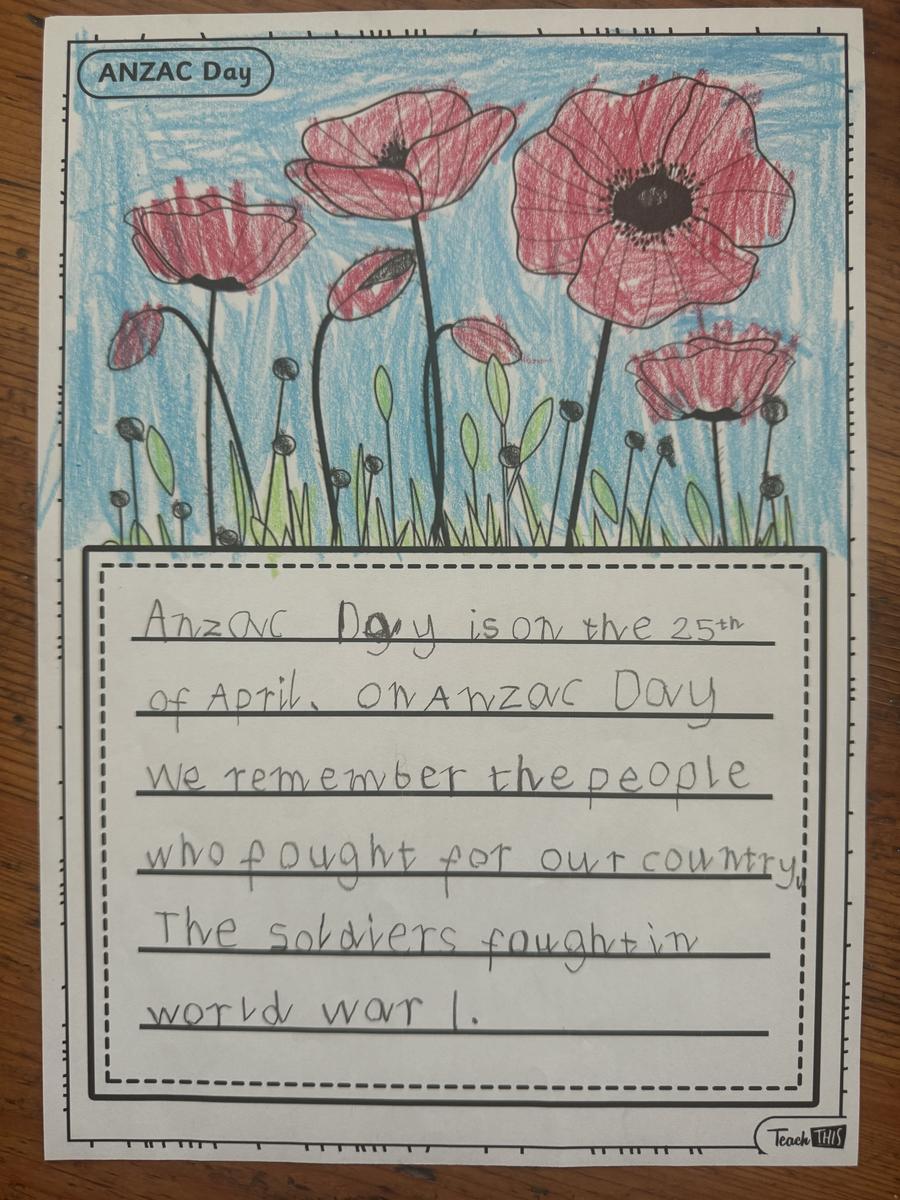 ANZAC Day
Anzac Day is on the 25th
of April. On Anzac Day
We remember the people
who fought for our country.
The soldiers fought in
world war 1.
Teach THIS